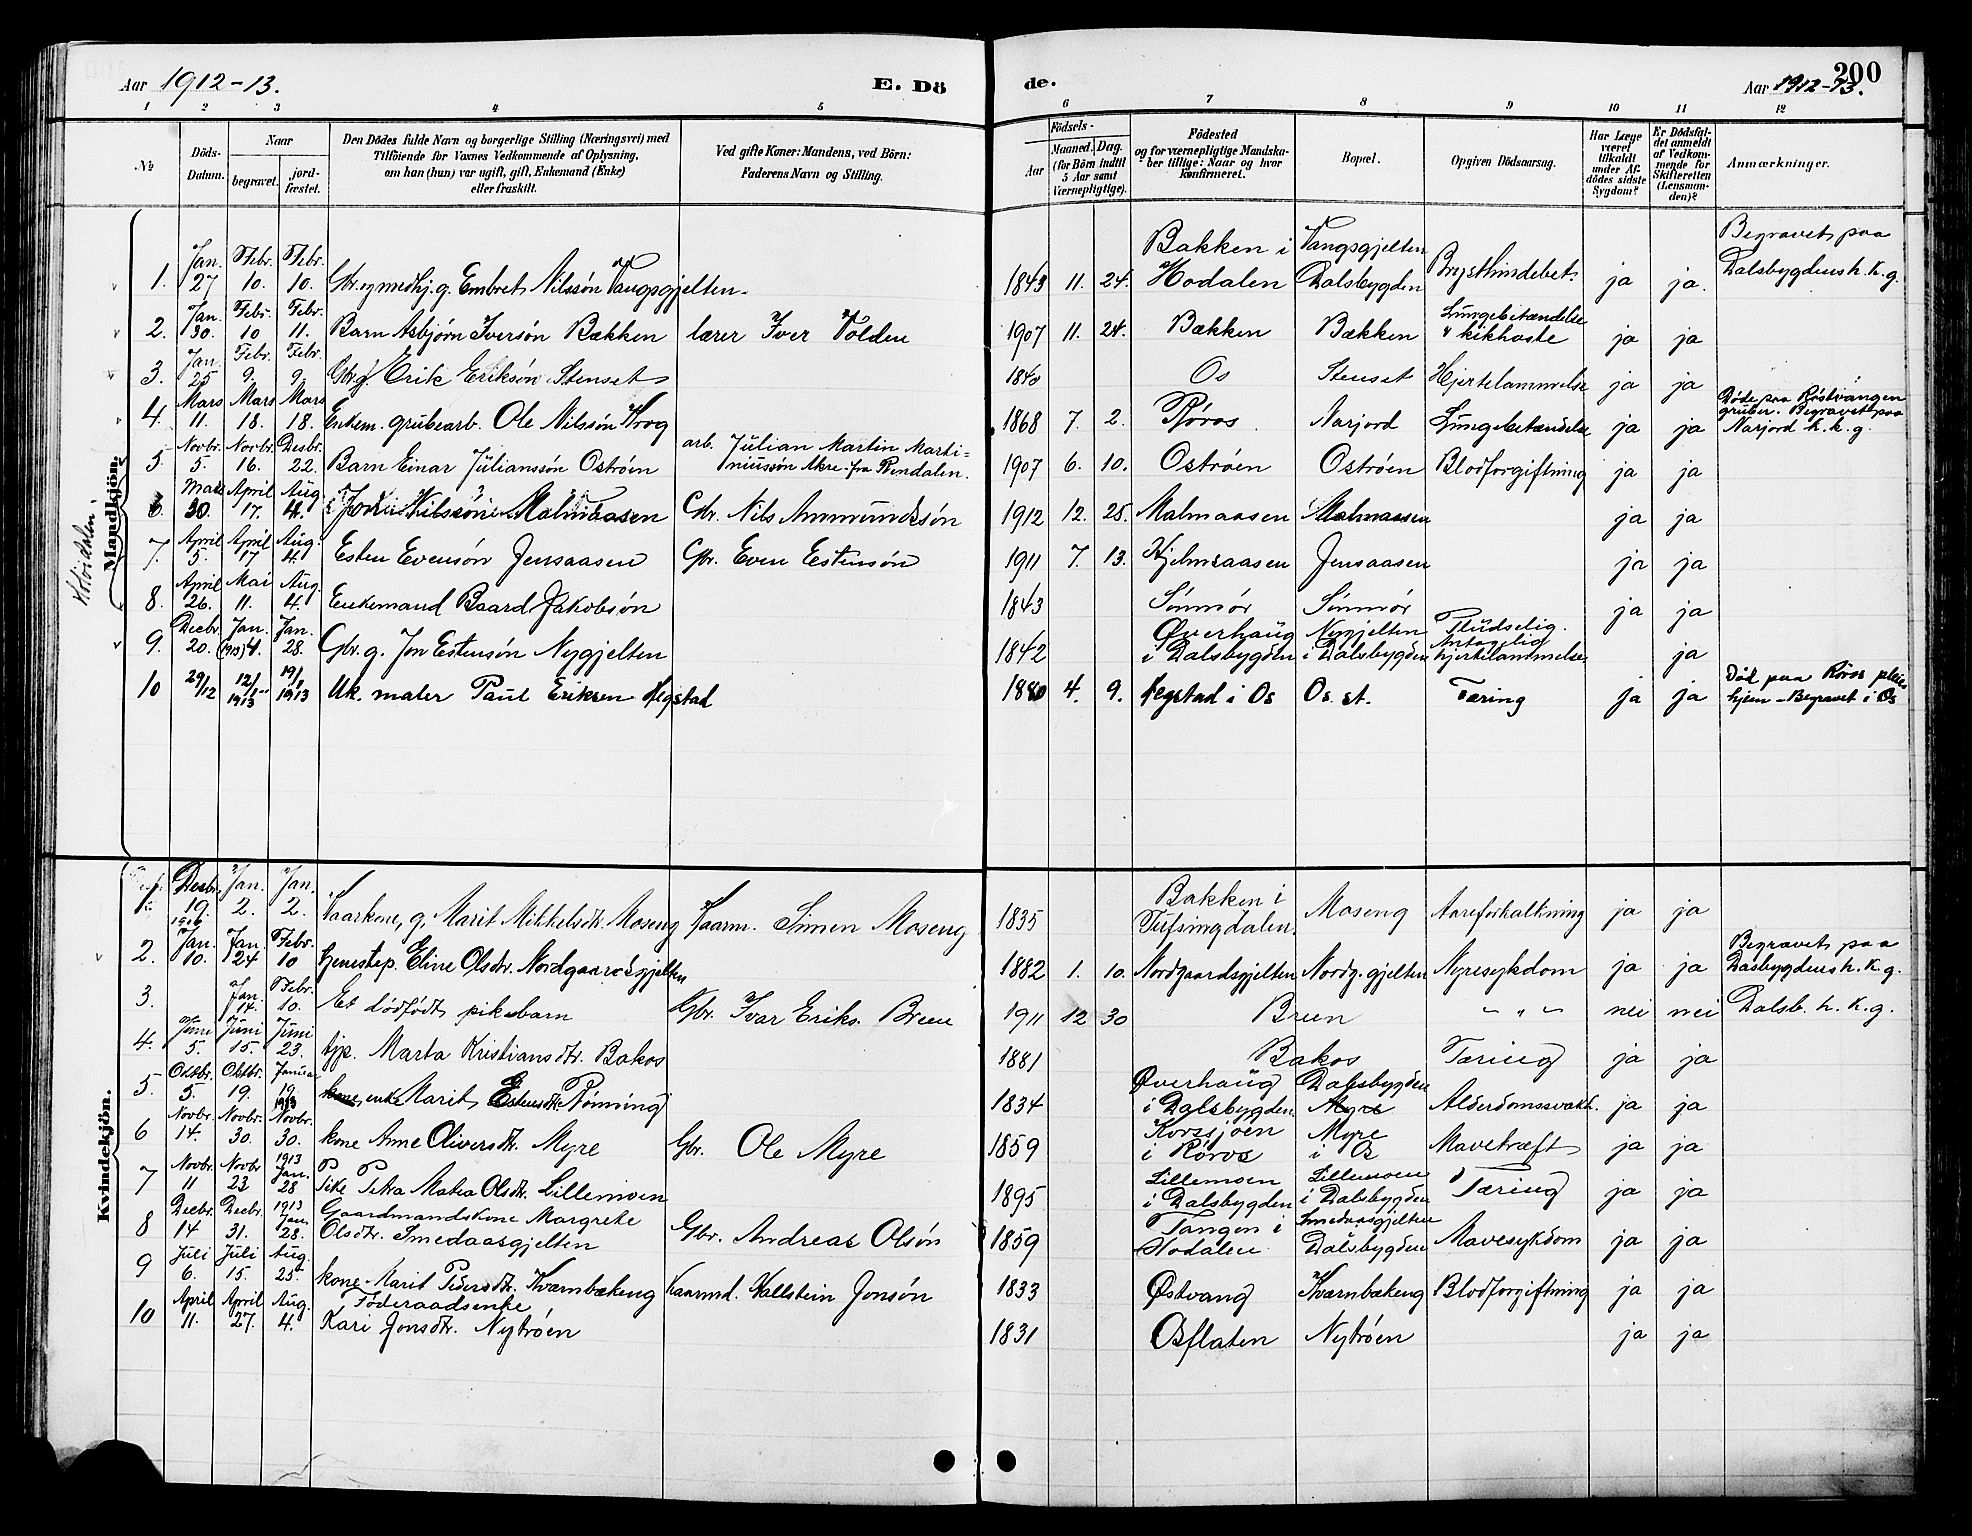 Aar 1912-13. E. Dö
de. Aar 1912-13. 200
1 2 3 4 5
6 7 8 9 10 11 12
№
Döds-Datum.
Naar
begravet.
jord-fæstet.
Den Dödes fulde Navn og borgerlige Stilling (Næringsvei) med
Tilföiende for Voxnes Vedkommende af Oplysning,
om han (hun) var ugift, gift, Enkemand (Enke)
eller fraskilt.
Ved gifte Koner: Mandens, ved Börn:
Faderens Navn og Stilling.
Födsels-
Aar
Maaned. Dag.
(for Börn indtil
5 Aar samt
Værnepligtige).
Födested
og for værnepligtige Mandska-
ber tillige: Naar og hvor
Konfirmeret.
Bopæl.
Opgiven Dödsaarsag.
Har Læge
været
tilkaldt
under Af-
dödes sidste
Sygdom?
Er Dödsfal-
det anmeldt
af Vedkom-
mende for
Skifteretten
(Lensman-
den)?
Anmærkninger.
Mandkjön.
1. Jan. 27 Febr. 10. Febr. 10. Embret Nilssön Vangsgjelten 1843 11. 24. Bakken i Hodalen Vangsgjelten Dalsbygden Brysthindebet. ja ja. Begravet paa Dalsbygdens h. k. g.
2. Jan. 30. Febr. 10 Febr. 11. Barn Asbjörn Iversön Bækken lærer Iver Volden 1907 11. 24. Bækken Bækken Lungebetændelse & kikhoste ja ja
3. Jan. 25 Febr. 9. Febr. 9. Gbr. g. Erik Eriksön Stenset 1840 Os Stenset Hjertelammelse ja ja
4. Mars 11. Mars 18. Mars 18. Enkem. grubearb. Ole Nilssön Krog 1868 7. 2. Röros Narjord Lungebetændelse ja ja Döde paa Röstvangen gruber. Begravet paa Narjord h. k. g.
5 Novbr. 5. Novbr. 16. Desbr. 22. Barn Einar Julianssön Oströen arb. Julian Martin Martiniussön Akre fra Rendalen. 1907 6. 10. Oströen Oströen Blodforgiftning ja ja
6 Mars 30. April 17. Aug. 4. Malmaasen Gbr. Nils Ammundssön 1912 12. 25. Malmaasen Malmaasen ja ja
7. April 5. April 17 Aug. 4. Esten Evensön Jensaasen Gbr. Even Estensön 1911 7. 13. Hjelmsaasen Jensaasen ja ja
8. April 26. Mai 11. Aug. 4. Enkemand Baard Jakobsön 1843 Sönmör Sönmör ja ja
9. Decbr. 20. Jan. (1913) 4. Jan. 28. Gbr. g. Jon Estensön Nygjelten 1842 Øverhaug i Dalsbygden Nygjelten i Dalsbygden Pludselig. Antagelig hjertelammelse ja
10 29/12 12/1 1913 19/1 1913 Uk. maler Paul Eriksen Hegstad 1880 4. 9. Hegstad i Os Os. st. Tæring ja ja Död paa Röros pleiehjem – Begravet i Os
Kvindekjön.
1. Desbr. 19. Jan. 2. Jan. 2. Kaarkone, g, Marit Mikkelsdtr. Moseng Kaarm. Simen Moseng 1835 Bakken i Tufsingdalen. Moseng Aareforkalkning ja ja
2. Jan. 10. Jan. 24 Febr. 10 tjenestep. Eline Olsdtr. Nordgaardsgjelten 1882 1. 10. Nordgaardsgjelten Nordg. gjelten Nyresykdom ja ja Begravet paa Dasbygdens h. k. g.
3. Jan. 14. Febr. 10. Et dödfödt pikebarn Gbr. Ivar Eriks. Breen 1911 12 30 Breen – „ – nei nei Dalsb. h. k. g.
4. Juni 5. Juni 15. Juni 23. tjp. Marta Kristiansdtr. Bakos 1881 Bakos Tæring ja ja
5 Oktbr. 5. Oktbr. 19. Januar 19 1913 kone, enke Marit Estensdtr. Rönning 1834 Øverhaug i Dalsbygden. Dalsbygden Myre Alderdomssvakh. ja ja
6 Novbr. 14. Novbr. 30. Novbr. 30. kone Anne Oliversdtr. Myre Gbr. Ole Myre 1859 Korssjoen i Röros Myre i Os Mavekræft ja ja
7 Novbr. 11 Novbr 23 1913 Jan. 28 Pike Petra Matea Olsdtr. Lillemoen 1895 Lillemoen i Dalsbygden Lillemoen i Dalsbygden Tæring ja ja
8 Decbr. 14 Decbr. 31. 1913 Jan. 28. Gaardmandskone Margrete Olsdtr. Smedaasgjelten Gbr. Andreas Olsön 1859 Tangen i Hodalen Smedaasgjelten Dalsbygden Mavesykdom ja ja
9 Juli 6. Juli 15. Aug. 25. kone Marit Pedersdtr. Kvarnbækeng Kaarmd. Hallstein Jonsön 1833 Østvang Kvarnbækeng Blodforgiftning ja ja
10 April 11. April 27. Aug. 4. Föderaadsenke Kari Jonsdtr. Nytröen 1831 Osflaten Nytröen ja ja